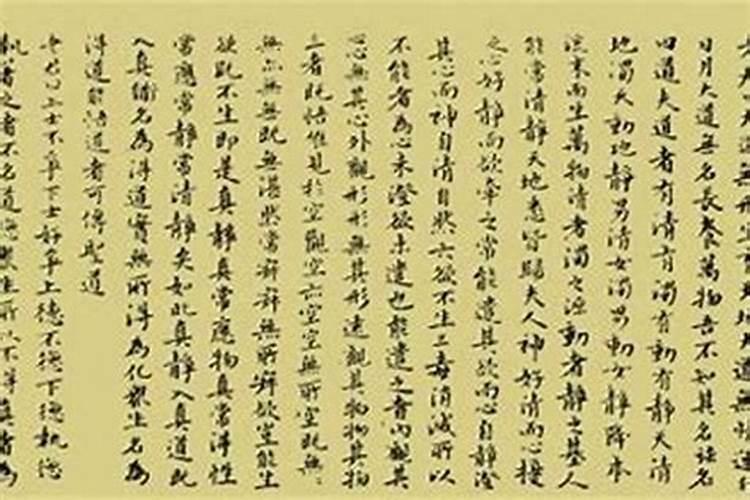 大道無形生育天地大道無情運行
日月大道無名長養萬物吾不知其名強名
曰道夫道者有清有濁有動有靜天清
地濁天動地靜男清女濁男動女靜降本
流末而生萬物清者濁之源動者靜之基人
能常清靜天地悉皆歸夫人神好清而心擾
之心好靜而欲牽之常能遣其欲而心自靜澄
其心而神自清自然六欲不生三毒消滅所以
不能者為心未澄欲未遣也能遣之者內觀其
心無其心外觀形形無其形遠觀其物物其物
三者既悟惟見於空觀空亦空空無所空既無
無亦無無既無湛然常寂寂無所寂欲豈能生
欲既不生即是真靜真常應物真常得性
常應常靜常清靜矣如此真靜入真道既
入真道名為得道實無所得為化眾生名為
得道能悟道者可傳聖道
老君曰上士不爭下士好爭上德不德下德執德
執著之者不名道德眾生所以不得真者為